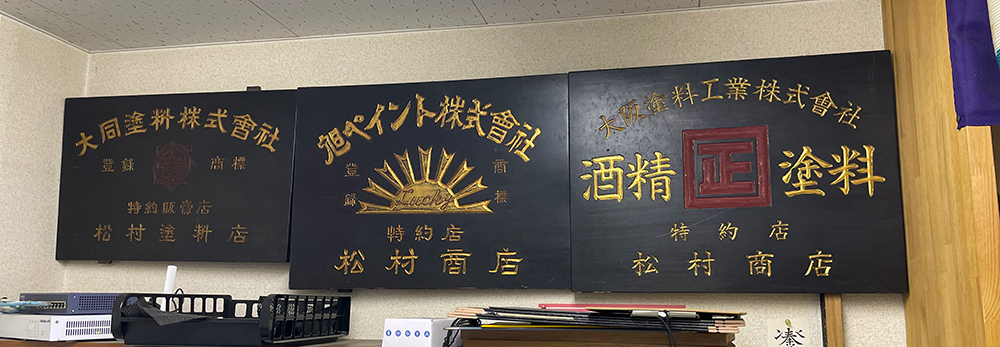 大同塗料株式會社
登錄 商標
特約販賣店
松村塗料店
旭ペイント株式會社
登錄 商標
Lucky
特約店
松村商店
大阪塗料工業株式會社
酒精 正 塗料
特約店
松村商店